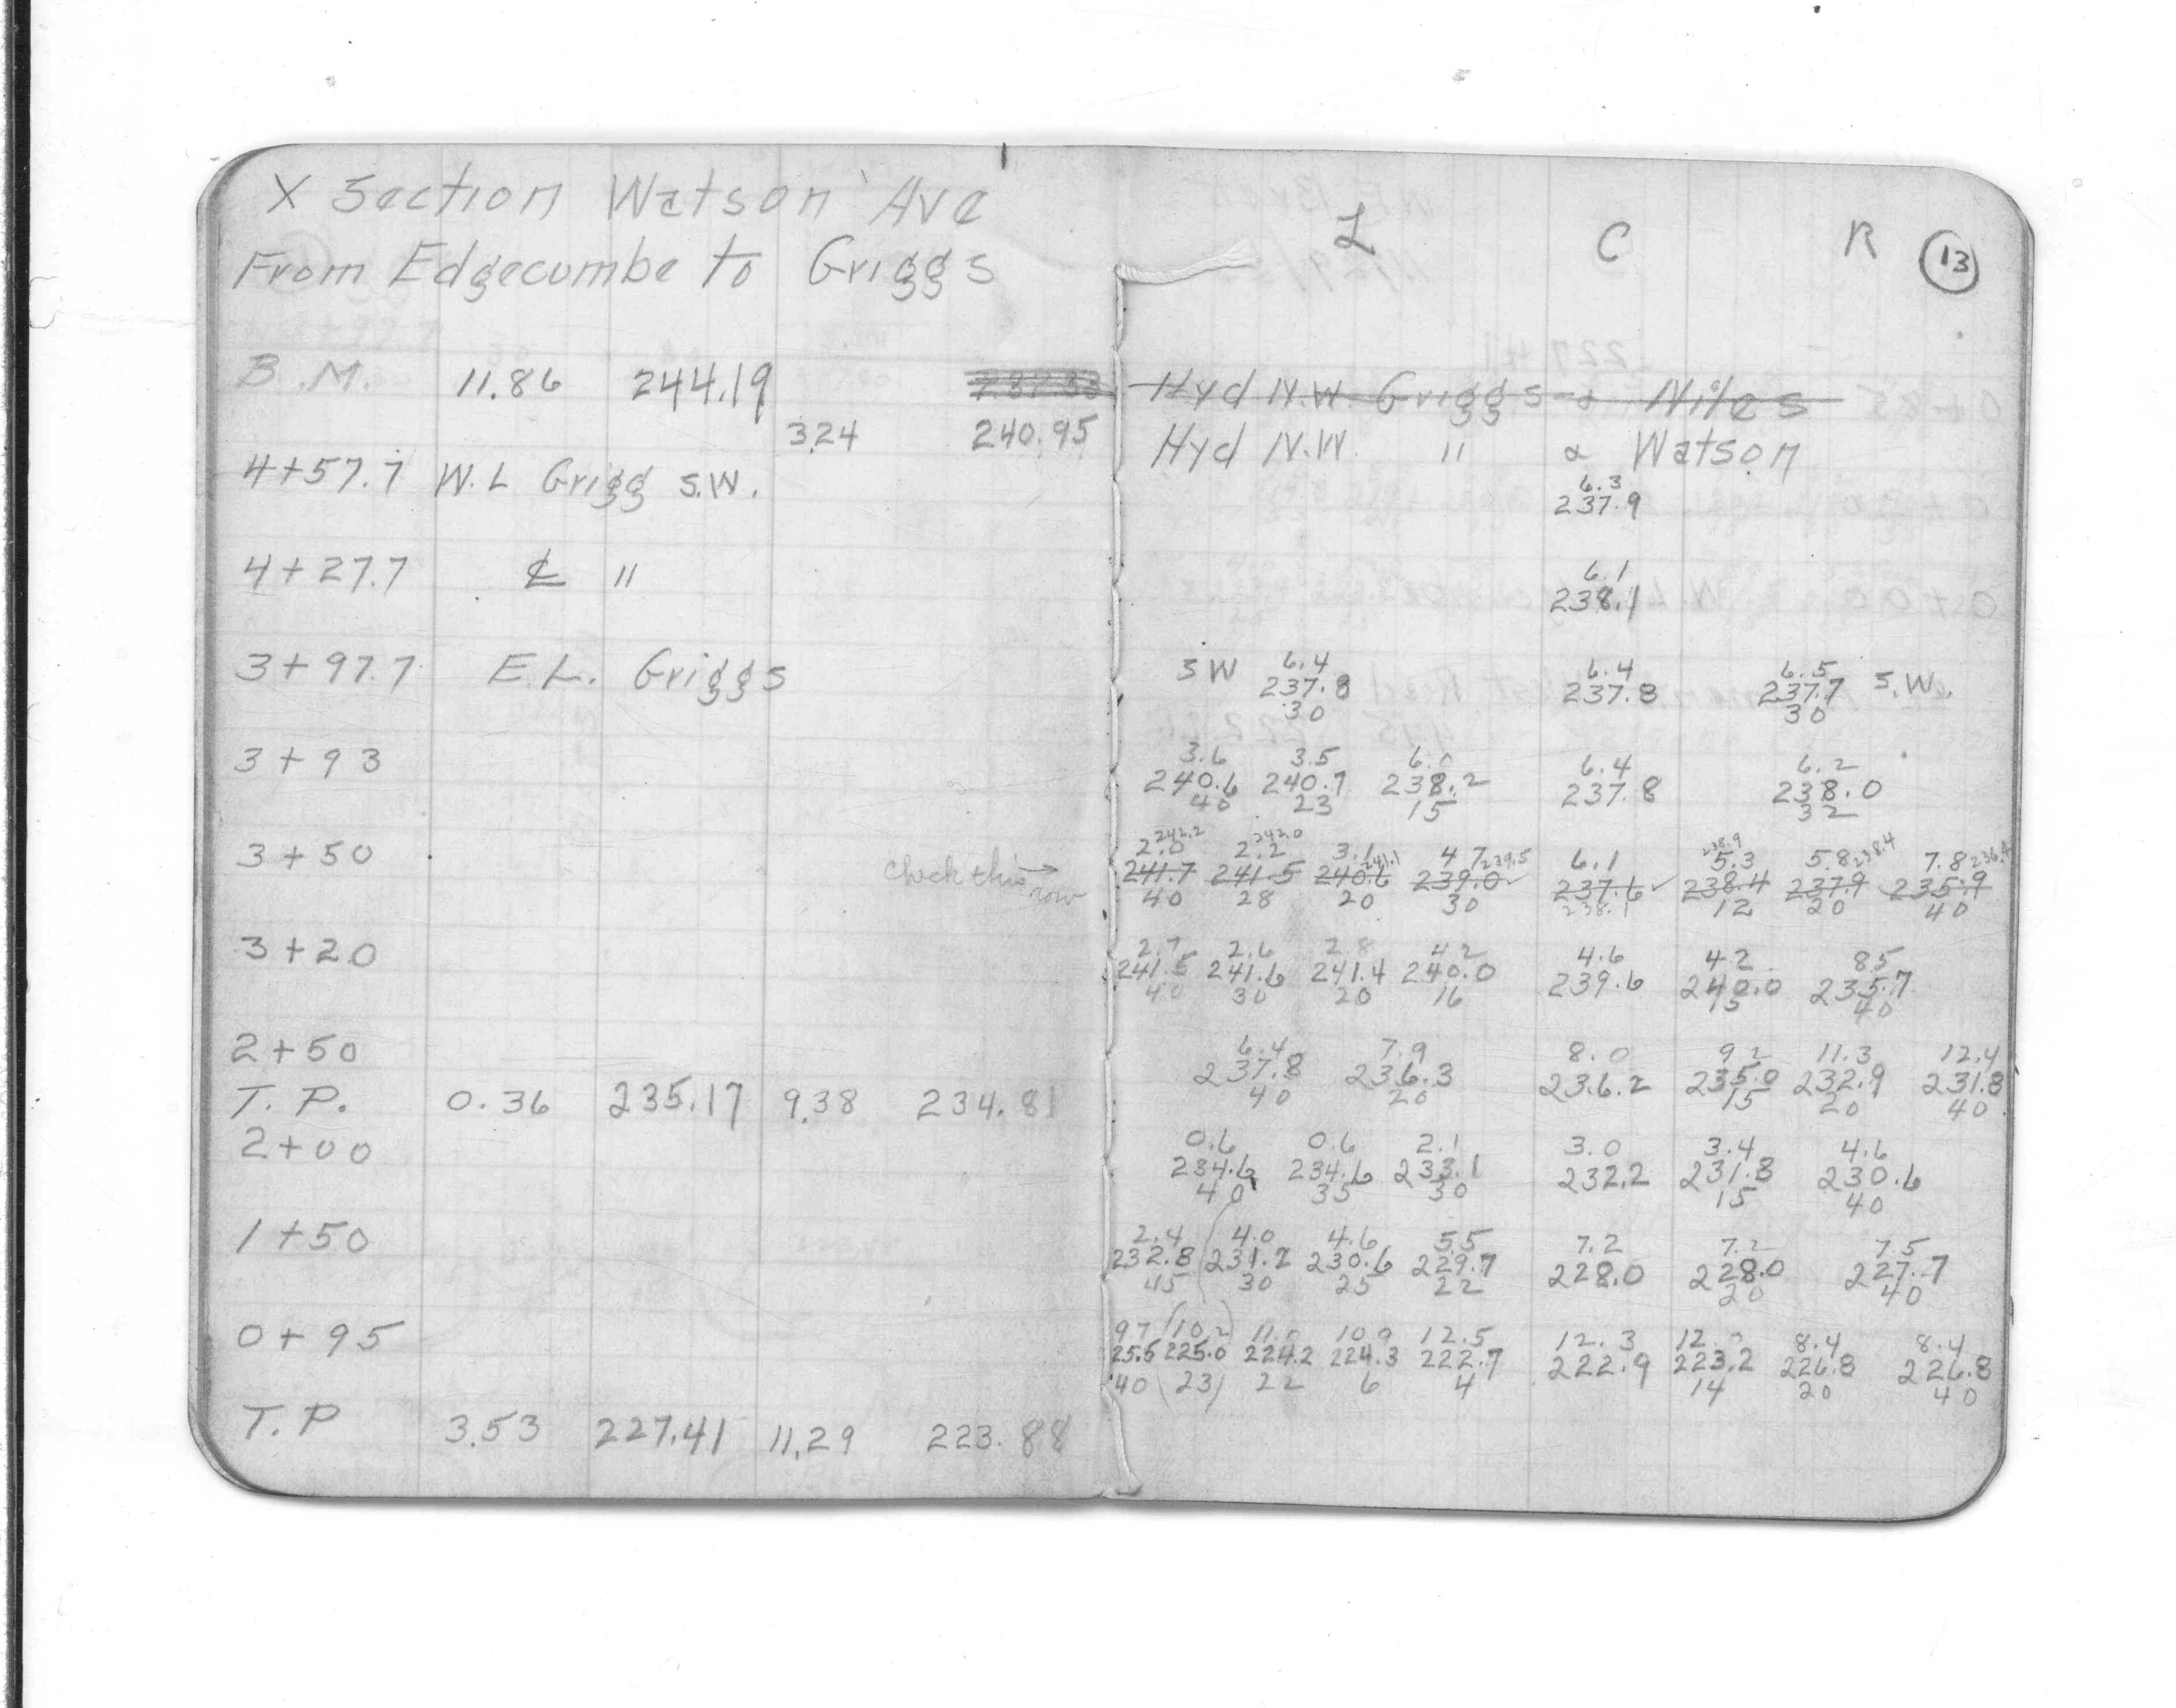 X Section Watson Ave
From Edgecumbe to Griggs
L C R 13
B.M. 11.86 244.19 237.33 Hyd N.W. Griggs & Niles
3.24 240.95 Hyd N.W. " & Watson
4+57.7 W.L Grigg S.W.
6.3
237.9
4+27.7 ℄ "
6.1
238.1
3+97.7 E.L. Griggs
SW 6.4 6.4 6.5
237.8 237.8 237.7 S.W.
30 30
3+93
3.6 3.5 6.0 6.4 6.2
240.6 240.7 238.2 237.8 238.0
40 23 15 32
3+50
242.2 242.0 238.9
2.0 2.2 3.1 241.1 4.7 239.5 6.1 5.3 5.8 238.4 7.8 236.4
check this row → 241.7 241.5 240.6 239.0 ✓ 237.6 ✓ 238.4 237.9 235.9
40 28 20 30 238.1 12 20 40
3+20
2.7 2.6 2.8 4.2 4.6 4.2 8.5
241.5 241.6 241.4 240.0 239.6 240.0 235.7
40 30 20 16 15 40
2+50
6.4 7.9 8.0 9.2 11.3 12.4
237.8 236.3 236.2 235.0 232.9 231.8
40 20 15 20 40
T.P. 0.36 235.17 9.38 234.81
2+00
0.6 0.6 2.1 3.0 3.4 4.6
234.6 234.6 233.1 232.2 231.8 230.6
40 35 30 15 40
1+50
2.4 4.0 4.6 5.5 7.2 7.2 7.5
232.8 231.2 230.6 229.7 228.0 228.0 227.7
45 30 25 22 20 40
0+95
9.7 (10.2) 11.0 10.9 12.5 12.3 12.0 8.4 8.4
25.5 225.0 224.2 224.3 222.7 222.9 223.2 226.8 226.8
40 (23) 22 6 4 14 20 40
T.P 3.53 227.41 11.29 223.88